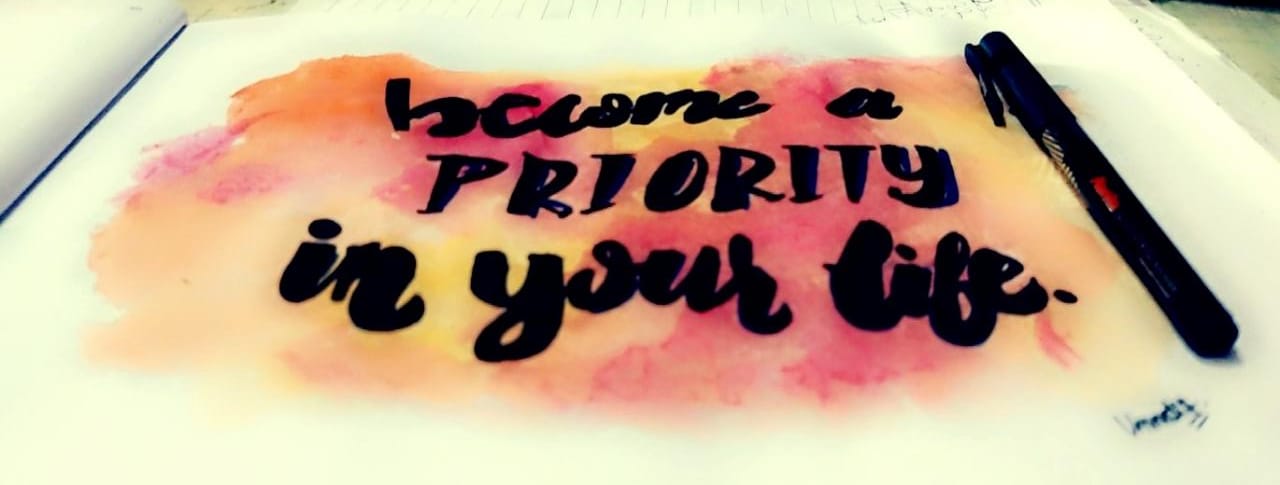 become a
PRIORITY
in your life.